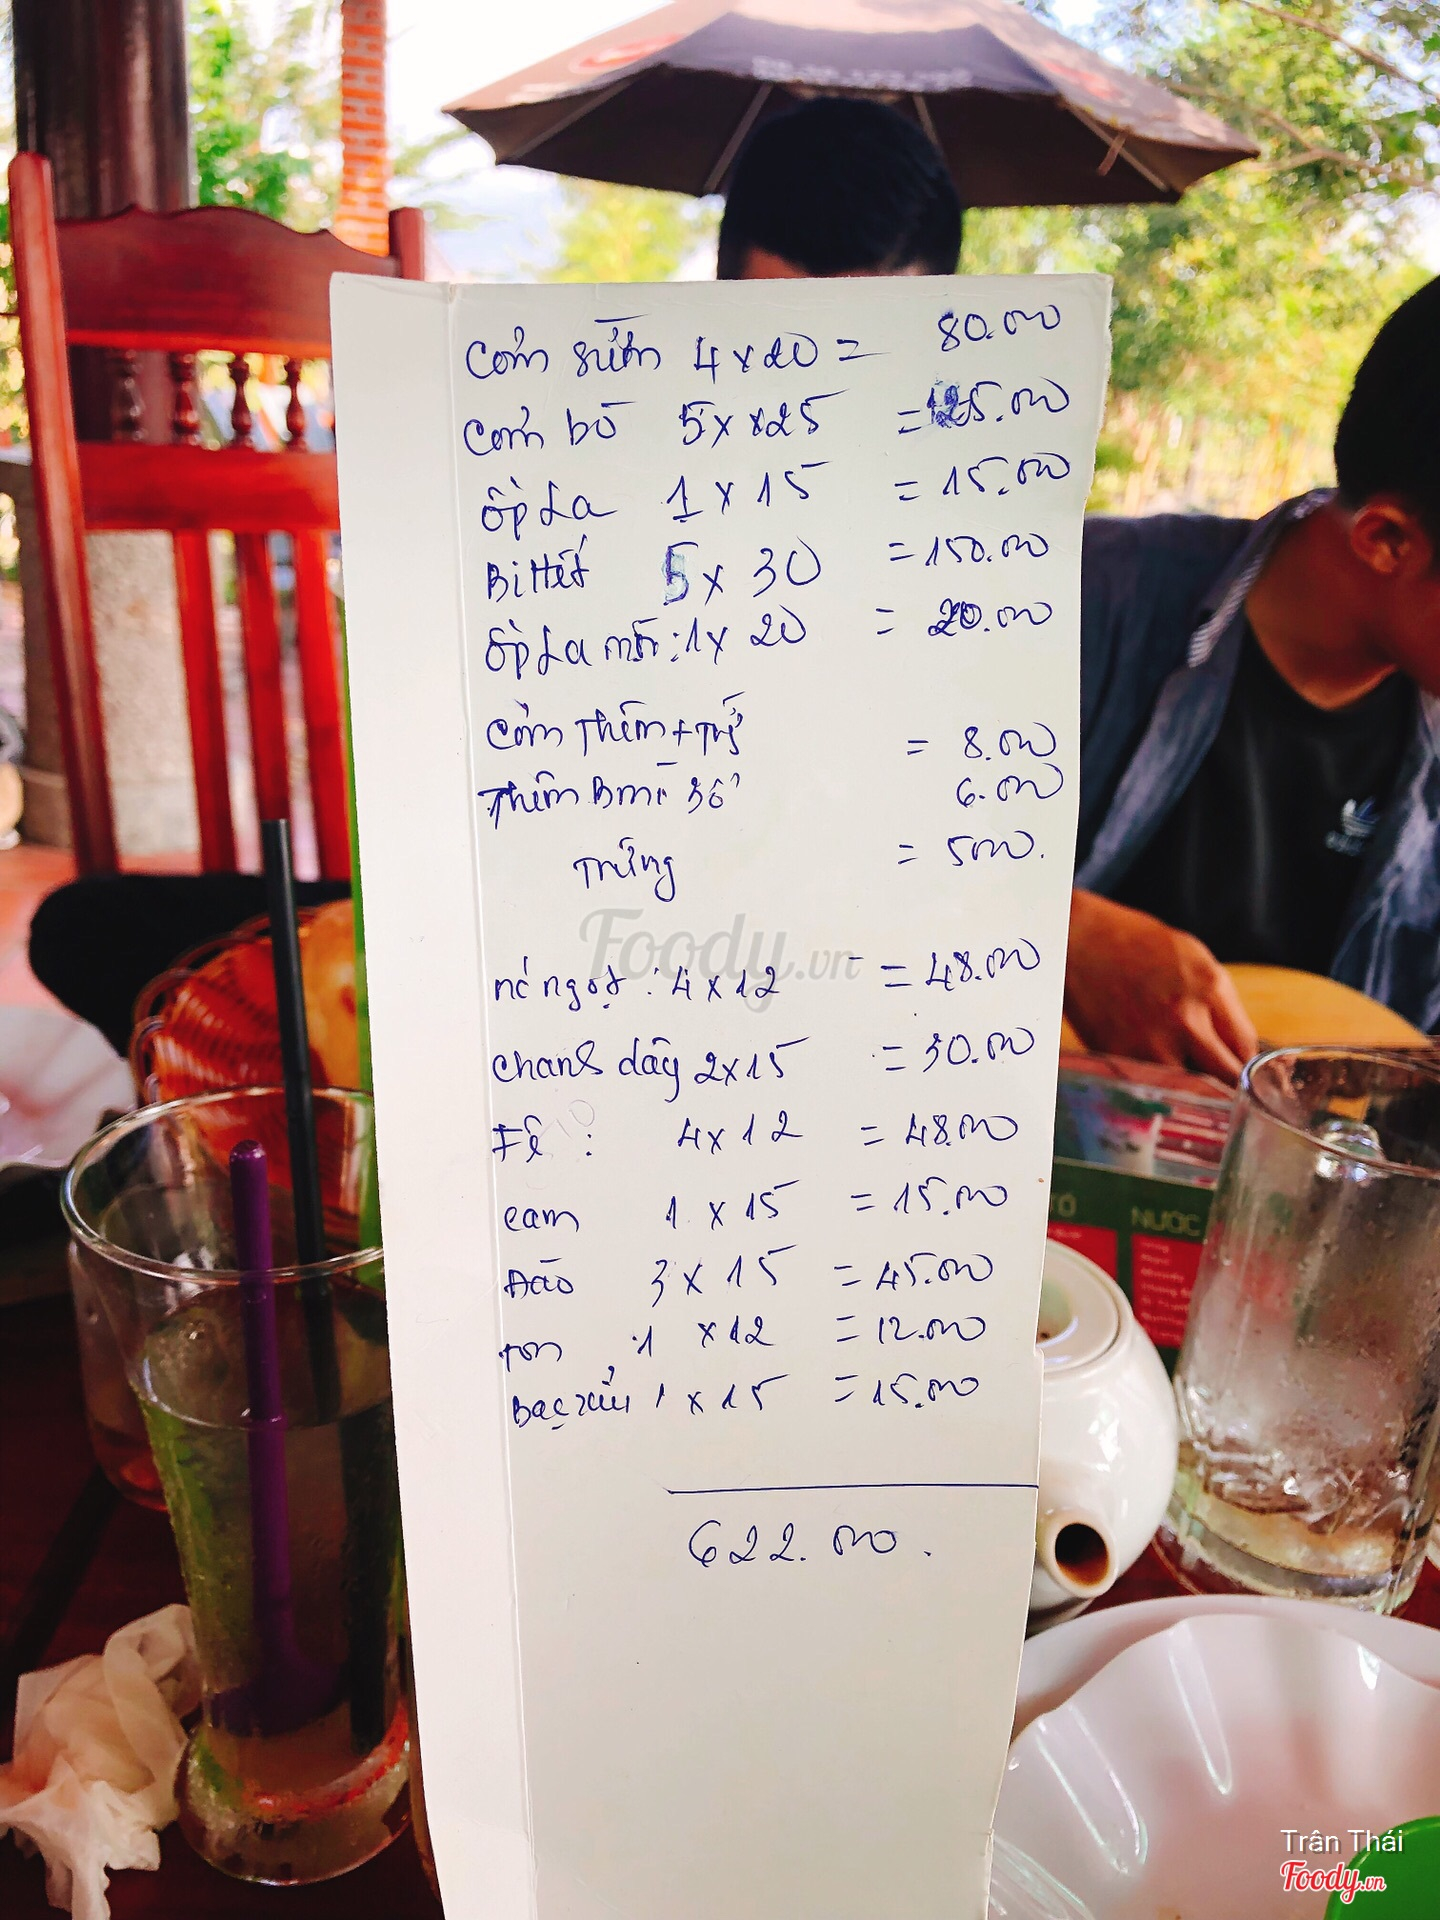 Cơm sườn 4 x 20 = 80.000
Cơm bò 5 x x 25 = 125.000
Ốp La 1 x 15 = 15.000
Bittết 5 x 30 = 150.000
Ốp La mì : 1 x 20 = 20.000
Cơm Thêm + = 8.000
Thêm Bmì 3ổ 6.000
Trứng = 5000.
nc ngọt : 4 x 12 = 48.000
Chanh dây 2 x 15 = 30.000
Fê : 4 x 12 = 48.000
cam 1 x 15 = 15.000
Đào 3 x 15 = 45.000
1 x 12 = 12.000
Bạc xỉu 1 x 15 = 15.000
622.000.
Foody.vn
NƯỚC
Trân Thái
Foody.vn